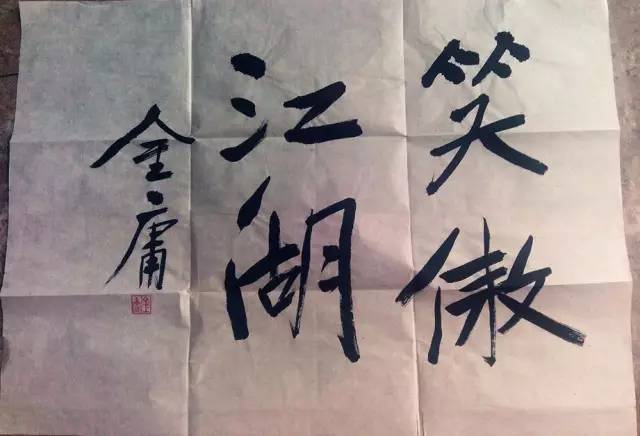 笑傲
江湖
金庸